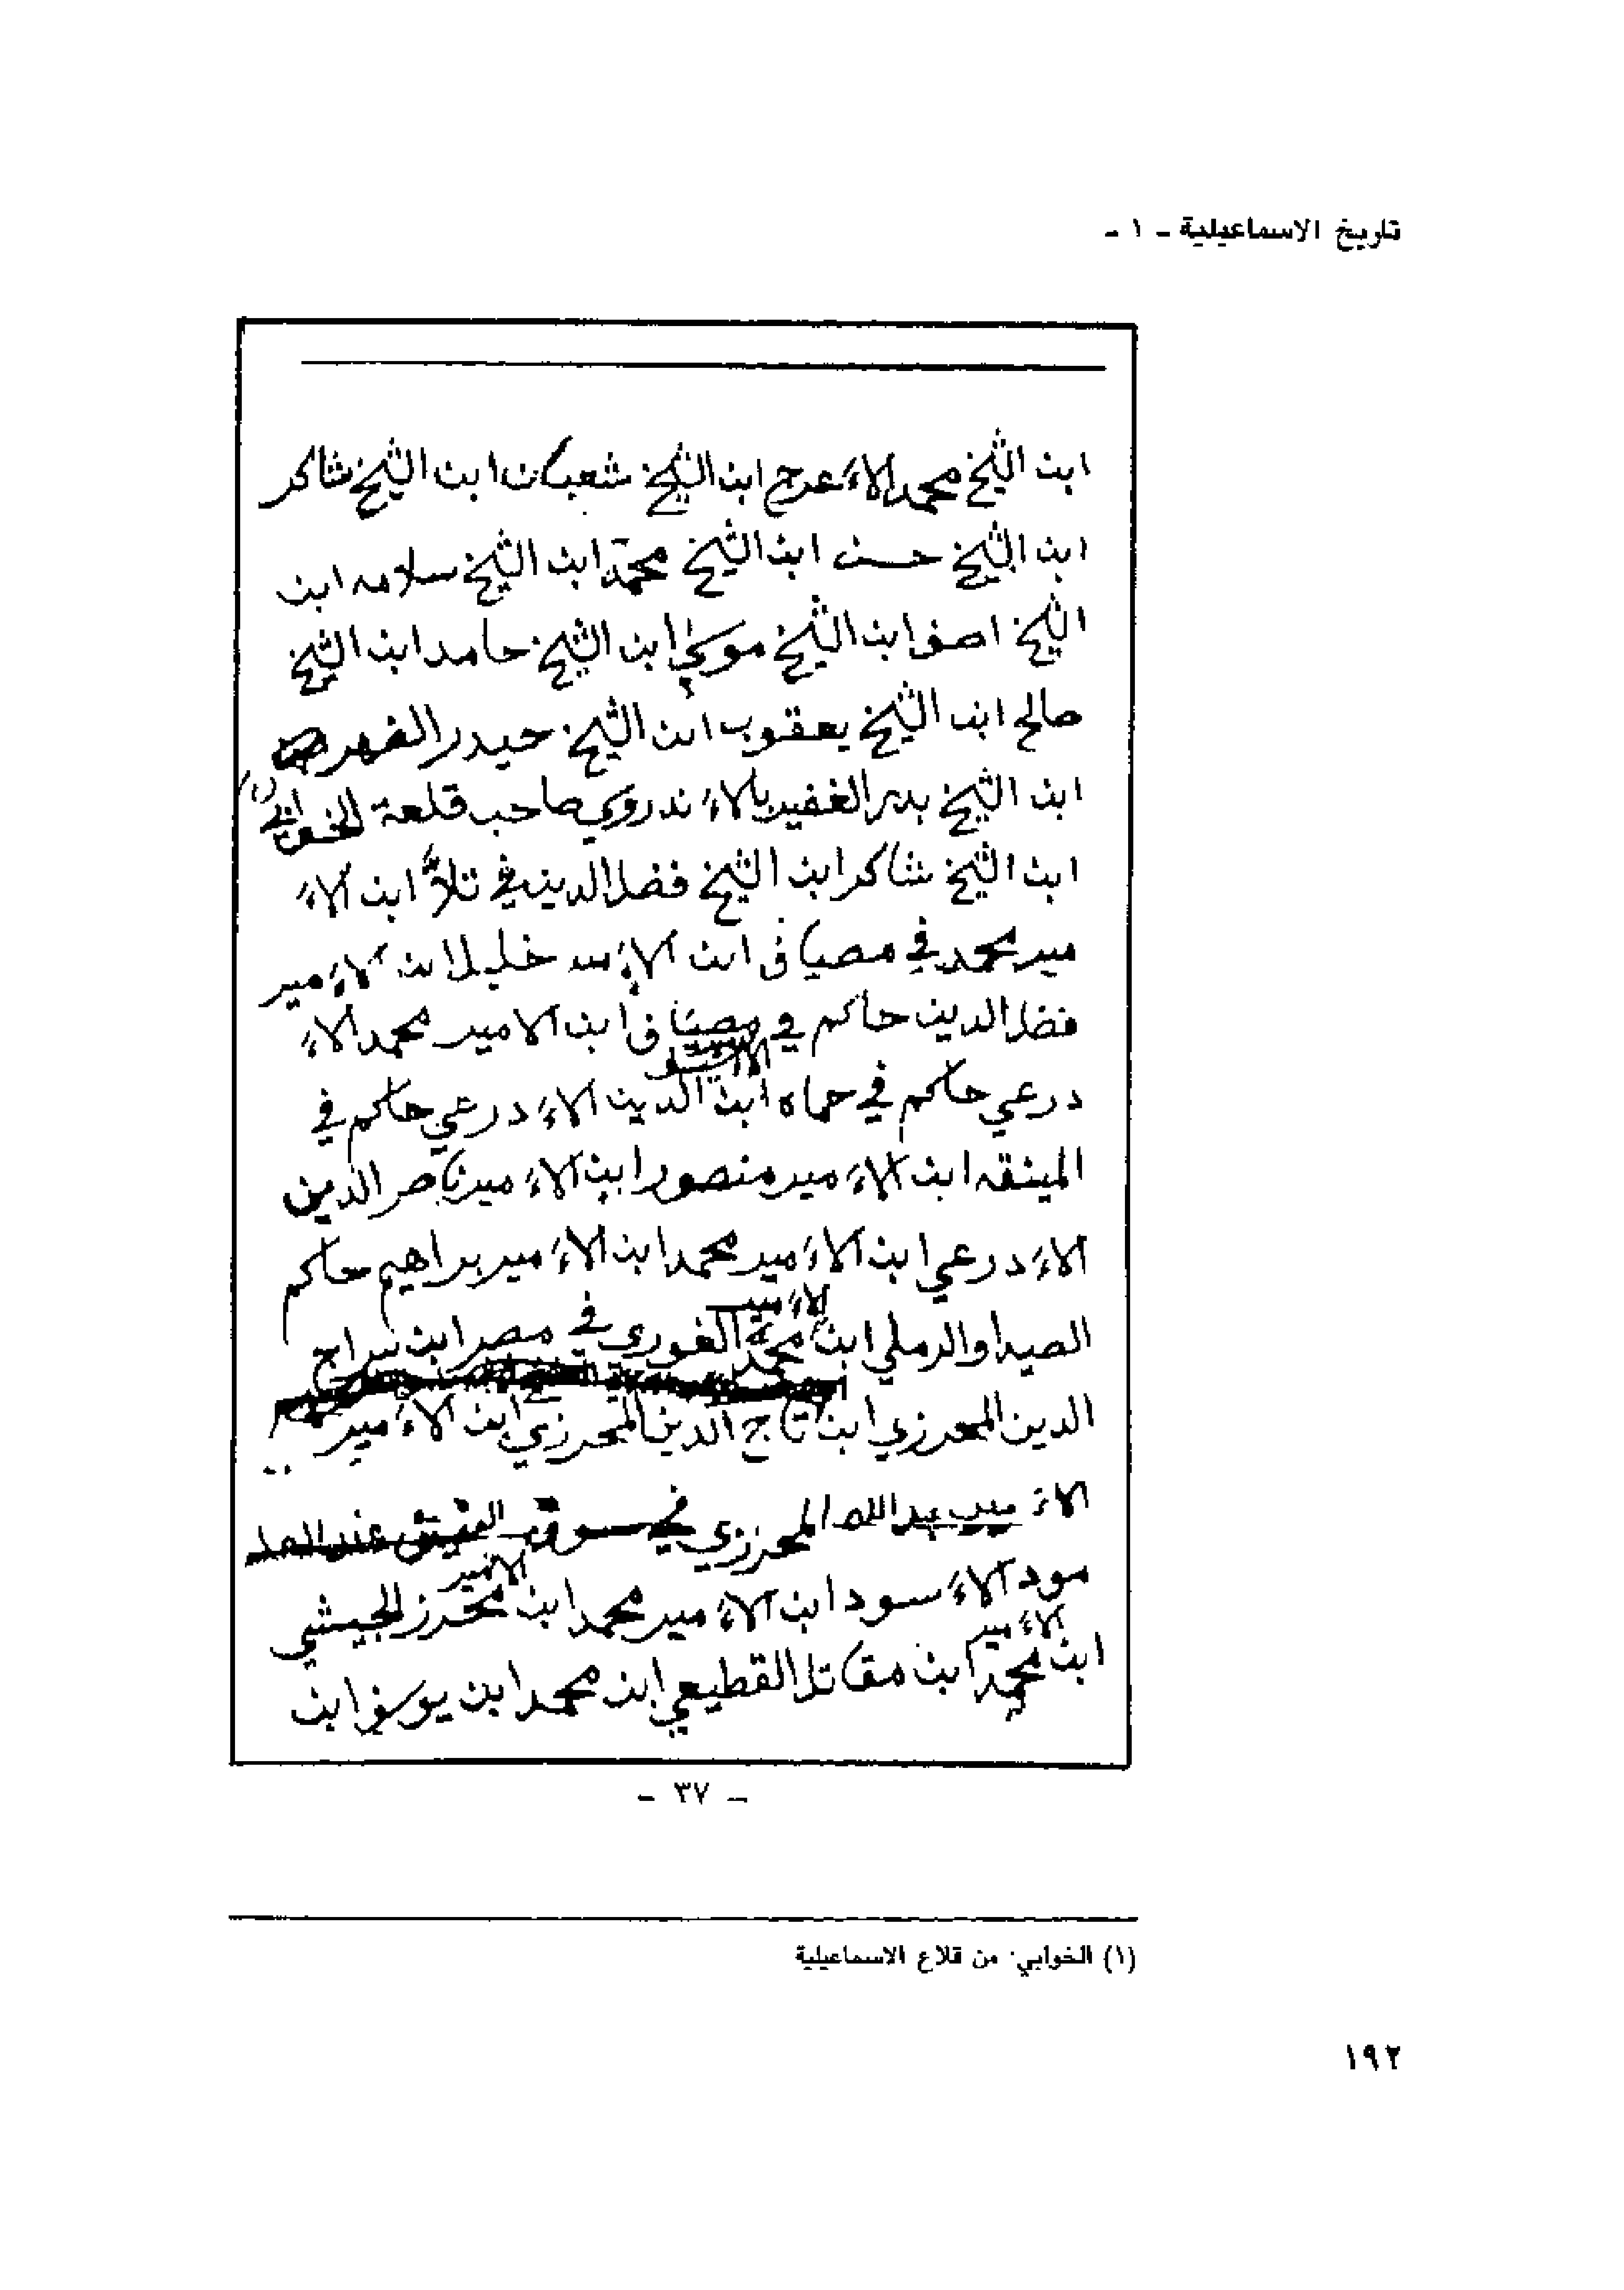 تاريخ الاسماعيلية - ١ -
ابن الشيخ محمد الاءعرج ابن الشيخ شعبان ابن الشيخ شاكر
ابن الشيخ حسن ابن الشيخ محمد ابن الشيخ سلامه ابن
الشيخ اصف ابن الشيخ موسى ابن الشيخ حامد ابن الشيخ
صالح ابن الشيخ يعقوب ابن الشيخ حيدر
ابن الشيخ بدر الغفير بالاء ندروي صاحب قلعة الخوابي (١)
ابن الشيخ شاكر ابن الشيخ فضل الدين في ابن الاء
مير محمد في مصياف ابن الاء مير خليل ابن الاء مير
فضل الدين حاكم في مصياف ابن الامير محمد الاء
درعي حاكم في حماه ابن الدين الاء درعي حاكم في
المينقه ابن الاء مير منصور ابن الاء مير ناصر الدين
الاء درعي ابن الاء مير محمد ابن الاء مير براهيم حاكم
الصيدا والرملي ابن الاء مير محمد الغوري في مصر ابن سراج
الدين المحرزي ابن تاج الدين المحرزي ابن الاء مير
الاء مير عبد الله المحرزي في سوق العتيق عند العا
مود الاء سود ابن الاء مير محمد ابن الامير محرز الجيشي
ابن الاء مير محمد ابن مقاتل القطيعي ابن محمد ابن يوسف ابن
- ٣٧ -
(١) الخوابي: من قلاع الاسماعيلية
١٩٢